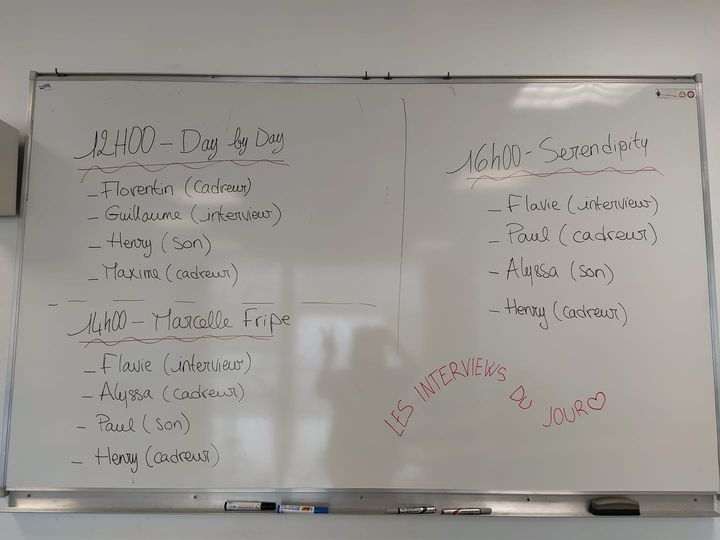 12H00 - Day by Day
- Florentin (cadreur)
- Guillaume (interview)
- Henry (son)
- Maxime (cadreur)
14h00 - Marcelle Fripe
- Flavie (interview)
- Alyssa (cadreur)
- Paul (son)
- Henry (cadreur)
16h00 - Serendipity
- Flavie (interview)
- Paul (cadreur)
- Alyssa (son)
- Henry (cadreur)
LES INTERVIEWS DU JOUR♡